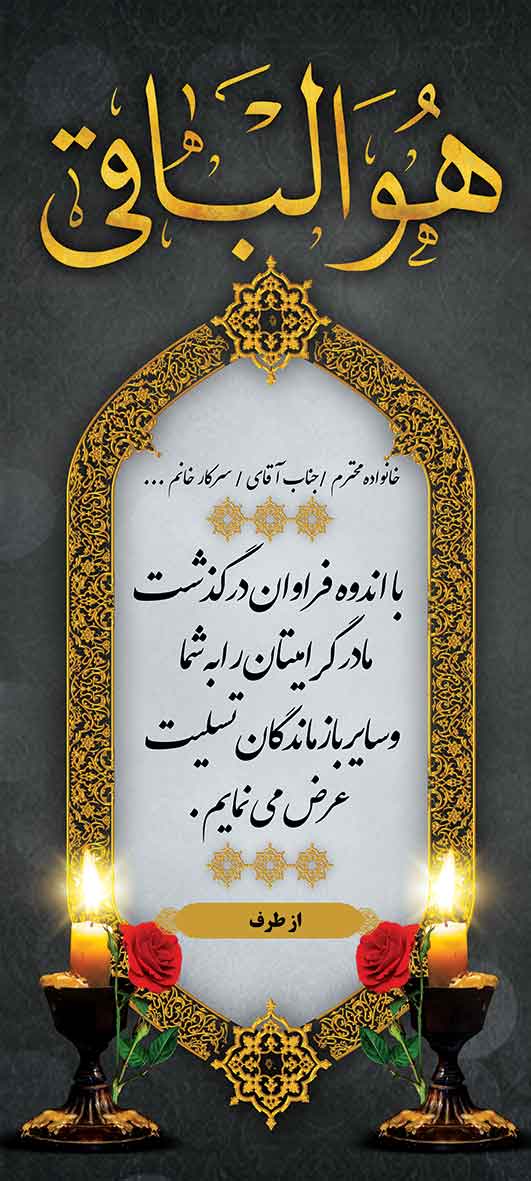 هُوَ الباقی
خانواده محترم / جناب آقای / سرکار خانم ...
با اندوه فراوان درگذشت
مادر گرامیتان را به شما
وسایر بازماندگان تسلیت
عرض می نمایم .
از طرف